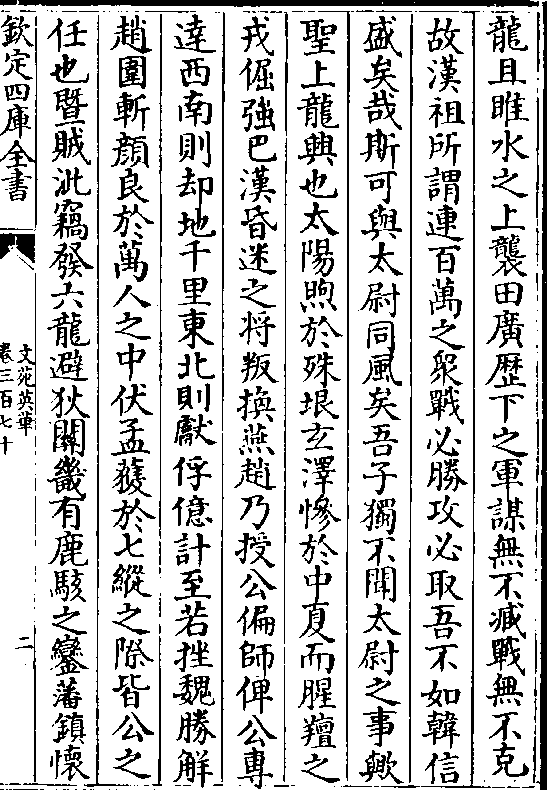 龍且睢水之上襲田廣歴下之軍謀無不臧戰無不克
故漢祖所謂連百萬之衆戰必勝攻必取吾不如韓信
盛矣哉斯可與太尉同風矣吾子獨不聞太尉之事歟
聖上龍興也太陽煦於殊垠玄澤慘於中夏而腥羶之
戎倔強巴漢昏迷之将叛換燕趙乃授公偏師俾公專
逹西南則却地千里東北則獻俘億計至若挫魏勝解
趙圍斬顔良於萬人之中伏孟獲於七縱之際皆公之
任也暨賊泚竊發六龍避狄關畿有鹿駭之釁藩鎮懷
欽定四庫全書
文苑英華
卷三百七十
二